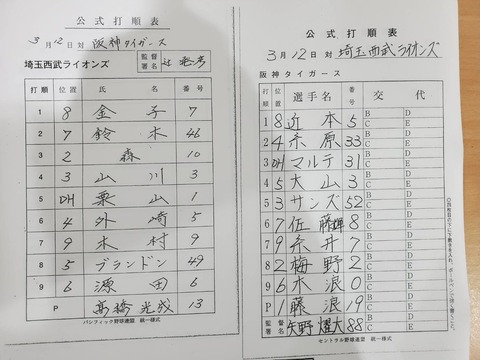 公式打順表
3月12日対 阪神タイガース
埼玉西武ライオンズ 監督署名 辻 発彦
打順 位置 氏名 番号
1 8 金子 7
2 7 鈴木 46
3 2 森 10
4 3 山川 3
5 DH 栗山 1
6 4 外崎 5
7 9 木村 9
8 5 ブランドン 49
9 6 源田 6
P 髙橋光成 13
パシフィック野球連盟 統一様式
公式打順表
3月12日対 埼玉西武ライオンズ
阪神タイガース
打順 位置 選手名 番号 交代
1 8 近本 5 B D C E
2 4 糸原 33 B D C E
3 DH マルテ 31 B D C E
4 5 大山 3 B D C E
5 3 サンズ 52 B D C E
6 7 佐藤輝 8 B D C E
7 9 糸井 7 B D C E
8 2 梅野 2 B D C E
9 6 木浪 0 B D C E
P 1 藤浪 19 B D C E
監督署名 矢野燿大 88
セントラル野球連盟 統一様式